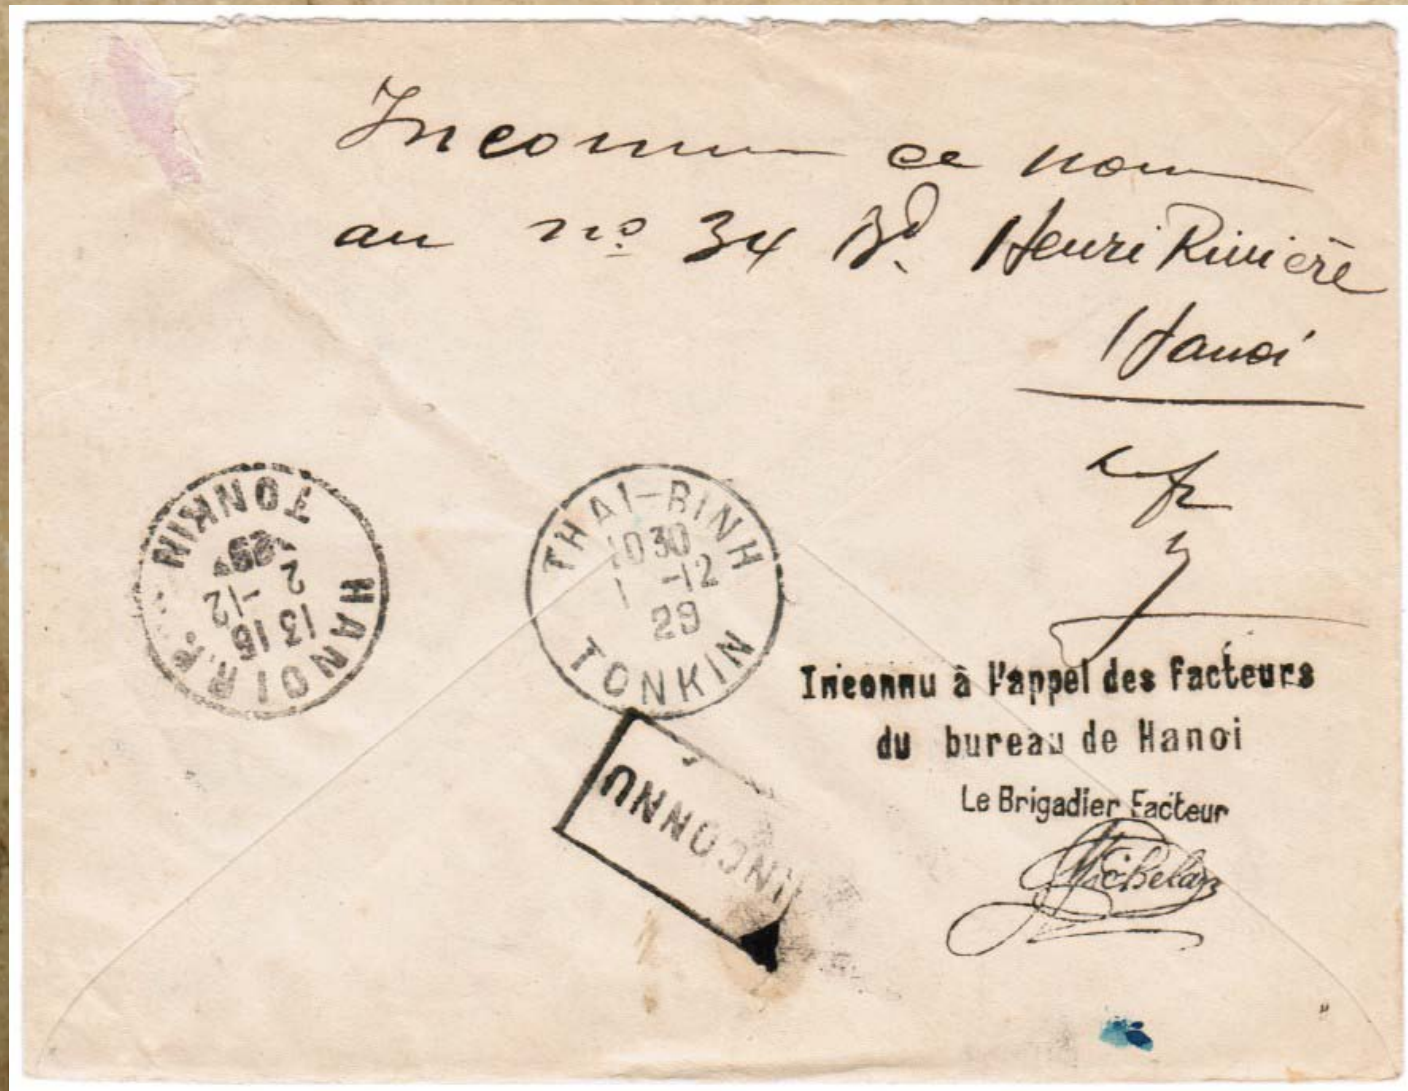 Inconnu ce nom
au nº 34 Bd. Henri Rivière
Hanoi
THAI-BINH
10 30
1 -12
29
TONKIN
HANOI R.P.
13 15
2 -12
29
TONKIN
INCONNU
Inconnu à l'appel des facteurs
du bureau de Hanoi
Le Brigadier Facteur